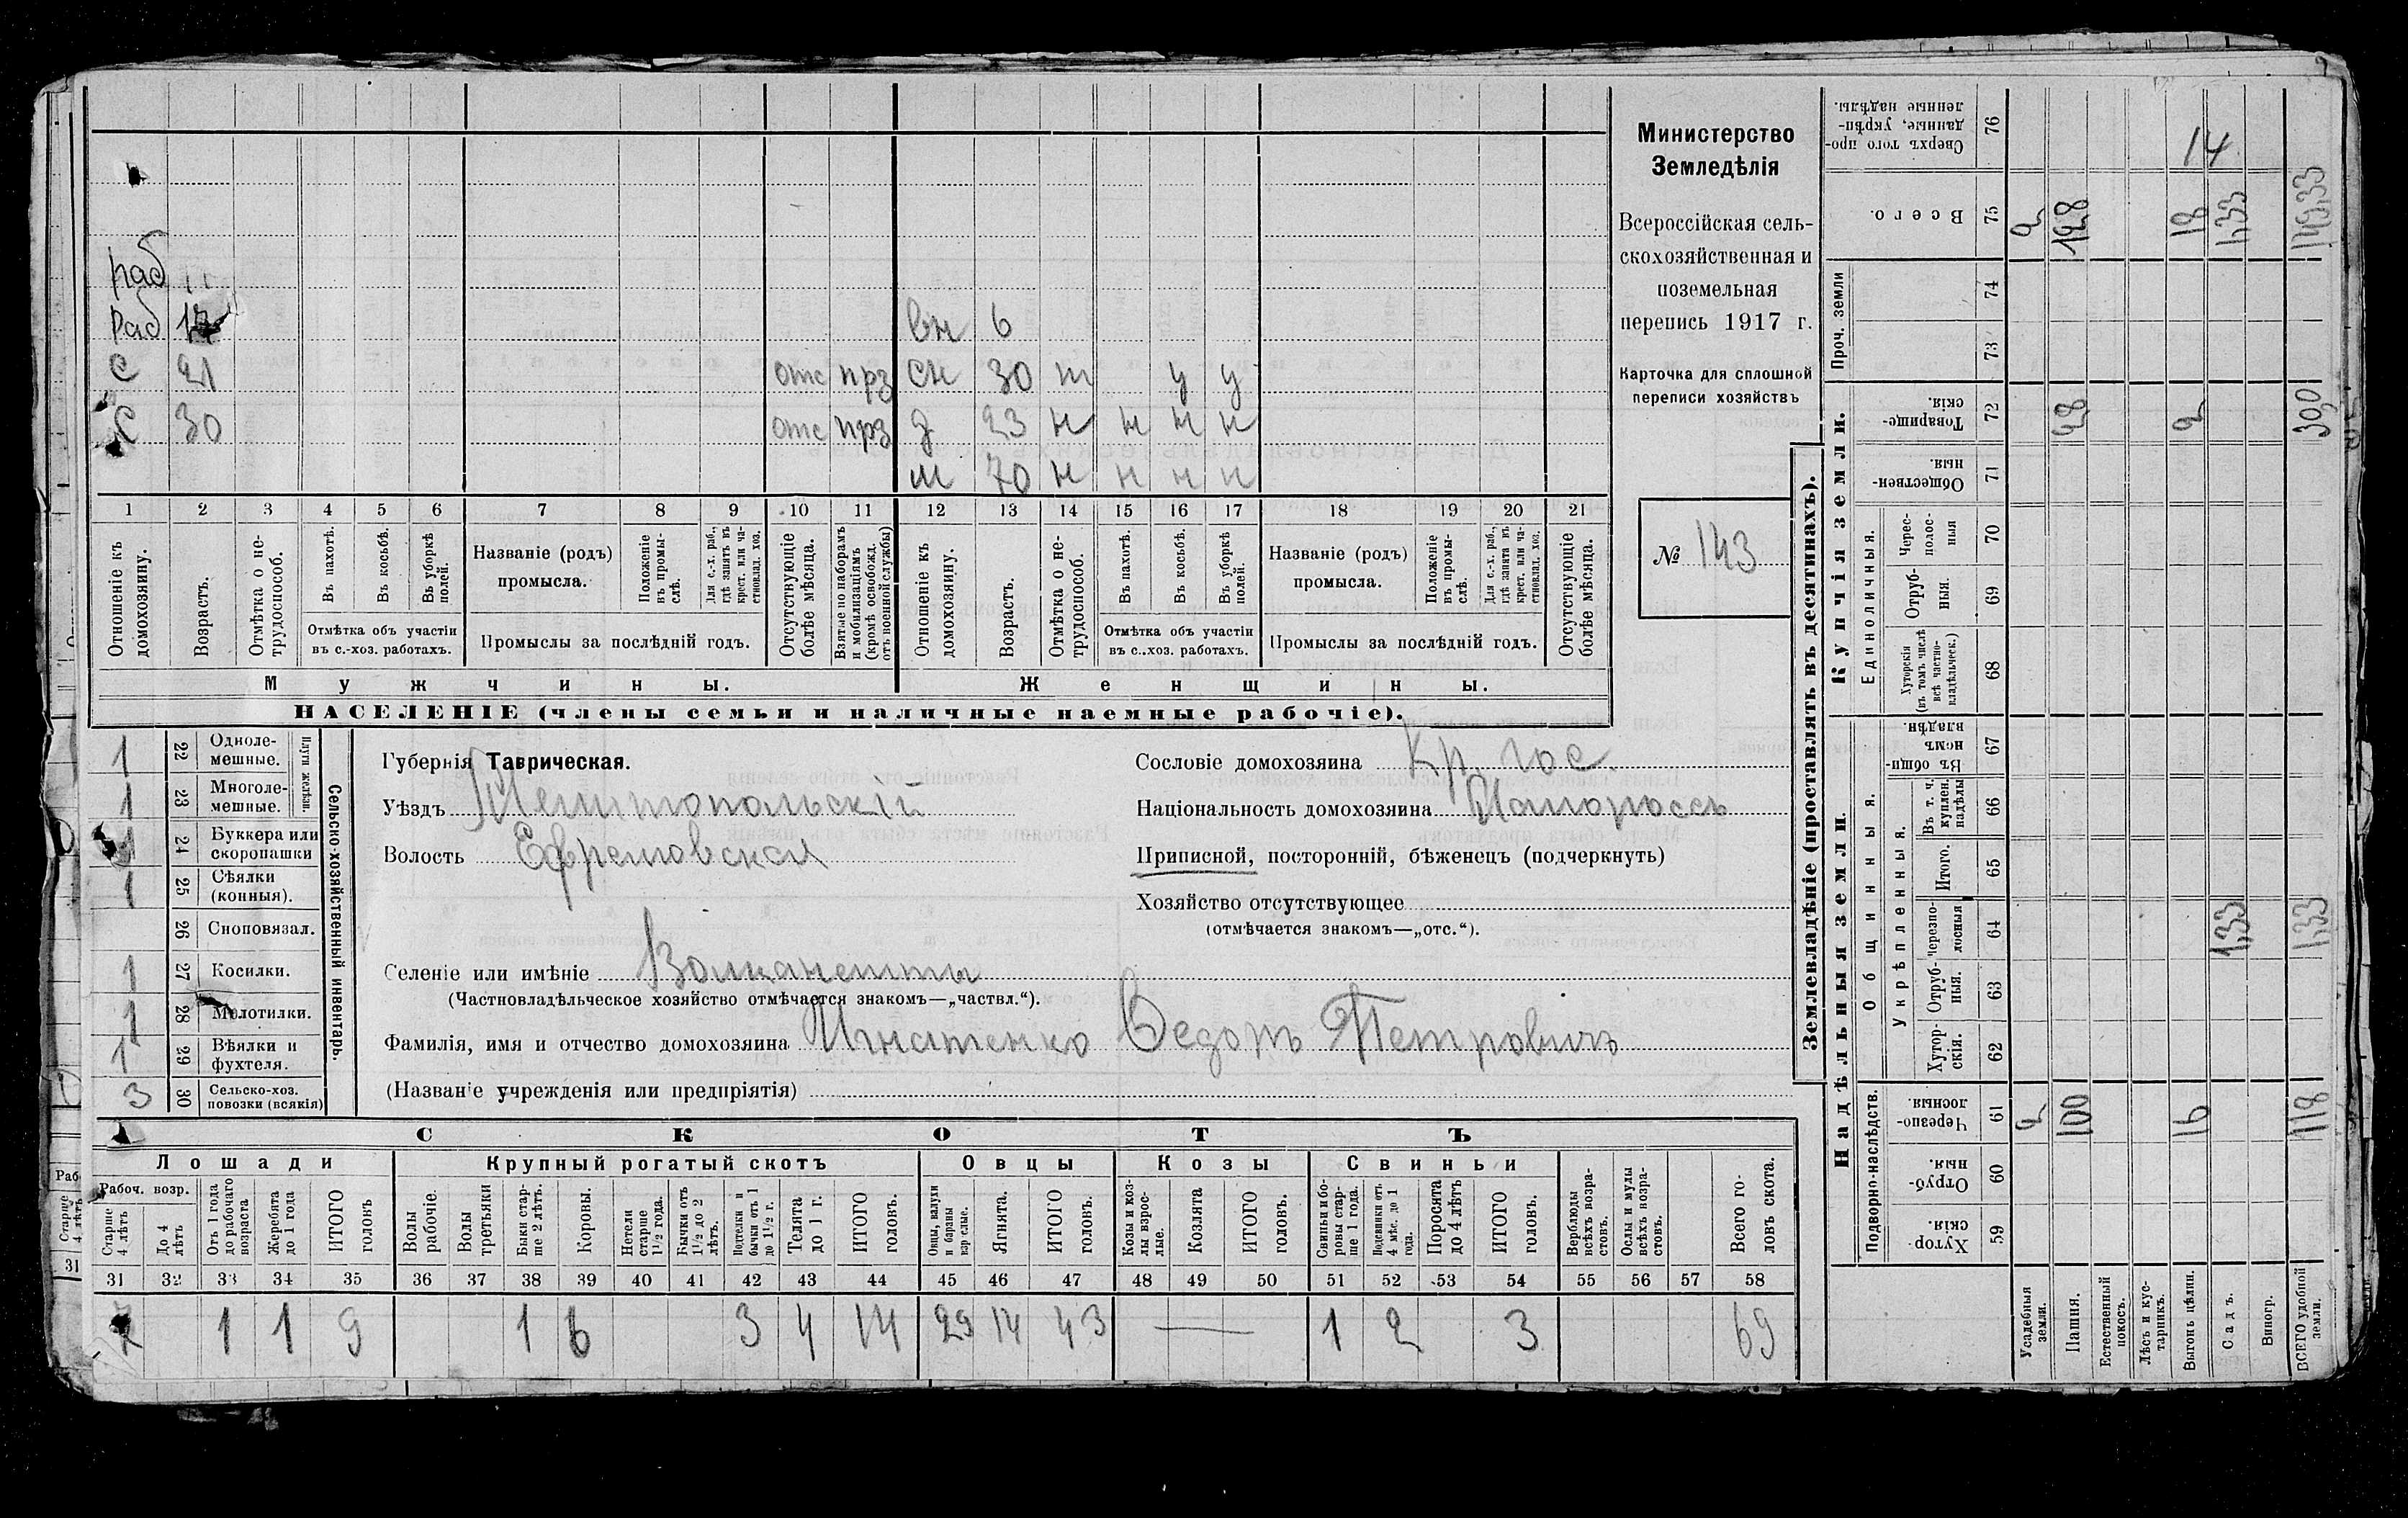 Министерство
Земледѣлія
Всероссійская сель-
скохозяйственная и
поземельная
перепись 1917 г.
Карточка для сплошной
переписи хозяйствъ
№ 143
раб
Раб 17 вн 6
С 21 отс прз сн 30 т у у
С 30 отс прз д 23 н н н н
м 70 н н н н
1 2 3 4 5 6 7 8 9 10 11 12 13 14 15 16 17 18 19 20 21
Отношеніе къ домохозяину.
Возрастъ.
Отмѣтка о не-трудоспособ.
Въ пахотѣ.
Въ косьбѣ.
Въ уборкѣ полей.
Отмѣтка объ участіи въ с.-хоз. работахъ.
Названіе (родъ) промысла.
Положеніе въ промы-слѣ.
Для с.-х. раб., гдѣ занятъ въ крест. или ча-стновлад. хоз.
Промыслы за послѣдній годъ.
Отсутствующіе болѣе мѣсяца.
Взятые по наборамъ и мобилизаціямъ (кромѣ освобожд. отъ военной службы)
Отношеніе къ домохозяину.
Возрастъ.
Отмѣтка о не-трудоспособ.
Въ пахотѣ.
Въ косьбѣ.
Въ уборкѣ полей.
Отмѣтка объ участіи въ с..хоз. работахъ.
Названіе (родъ) промысла.
Положеніе въ промы-слѣ.
Для с.-х. раб., гдѣ занята въ крест. или ча-стновлад. хоз.
Промыслы за послѣдній годъ.
Отсутствующіе болѣе мѣсяца.
Мужчины. Женщины.
НАСЕЛЕНІЕ (члены семьи и наличные наемные рабочіе).
Сельско-хозяйственный инвентарь.
Плуги желѣзн.
1 22 Одноле-мешные.
1 23 Многоле-мешные.
1 24 Буккера или скоропашки
1 25 Сѣялки (конныя).
26 Сноповязал.
1 27 Косилки.
1 28 Молотилки.
1 29 Вѣялки и фухтеля.
3 30 Сельско-хоз. повозки (всякія)
Губернія Таврическая.
Уѣздъ Мелитопольскій
Волость Ефремовская
Селеніе или имѣніе
(Частновладѣльческое хозяйство отмѣчается знакомъ—„частвл.“).
Фамилія, имя и отчество домохозяина Игнатенко Ѳедоръ Петровичъ
(Названіе учрежденія или предпріятія)
Сословіе домохозяина Кр. гос.
Національность домохозяина Малороссъ
Приписной, посторонній, бѣженецъ (подчеркнуть)
Хозяйство отсутствующее
(отмѣчается знакомъ—„отс.“).
СКОТЪ
Лошади Крупный рогатый скотъ Овцы Козы Свиньи
Рабоч. возр.
Старше 4 лѣтъ
До 4 лѣтъ
Отъ 1 года до рабочаго возраста
Жеребята до 1 года
ИТОГО головъ
Волы рабочіе.
Волы третьяки
Быки стар-ше 2 лѣтъ.
Коровы.
Нетели старше 1½ года.
Бычки отъ 1½ до 2 лѣтъ.
Подтелки и бычки отъ 1 до 1½ г.
Телята до 1 г.
ИТОГО головъ.
Овцы, валухи и бараны взрослые.
Ягнята.
ИТОГО головъ.
Козы и коз-лы взрос-лые.
Козлята
ИТОГО головъ.
Свиньи и бо-ровы стар-ше 1 года.
Подсвинки отъ 4 мѣс. до 1 года.
Поросята до 4 лѣтъ
ИТОГО головъ.
Верблюды всѣхъ возра-стовъ.
Ослы и мулы всѣхъ возра-стовъ.
Всего го-ловъ скота.
31 32 33 34 35 36 37 38 39 40 41 42 43 44 45 46 47 48 49 50 51 52 53 54 55 56 57 58
7 1 1 9 1 6 3 4 14 29 14 43 — 1 2 3 69
Землевладѣніе (проставлять въ десятинахъ).
Надѣльныя земли. Купчія земли.
Подворно-наслѣдств.
Общинныя.
Укрѣпленныя.
Единоличныя.
Проч. земли
59 Хутор-скія.
60 Отруб-ныя.
61 Черезпо-лосныя.
62 Хутор-скія.
63 Отруб-ныя.
64 Черезпо-лосныя
65 Итого.
66 Въ т. ч. куплен. надѣлы
67 Въ общи-номъ владѣн.
68 Хуторскія (въ томъ числѣ всѣ частно-владѣльческ.)
69 Отруб-ныя.
70 Черес-полос-ныя
71 Обществен-ныя.
72 Товарище-скія.
73
74
75 Всего.
76 Сверхъ того про-данные, укрѣп-ленные надѣлы.
Усадебныя земли. 2 2
Пашня. 100 28 128
Естественный покосъ.
Лѣсъ и кус-тарникъ.
Выгонъ цѣлин. 16 2 18 14
Садъ. 1,33 1,33
Виногр.
ВСЕГО удобной земли. 118 1,33 30,0 149,33